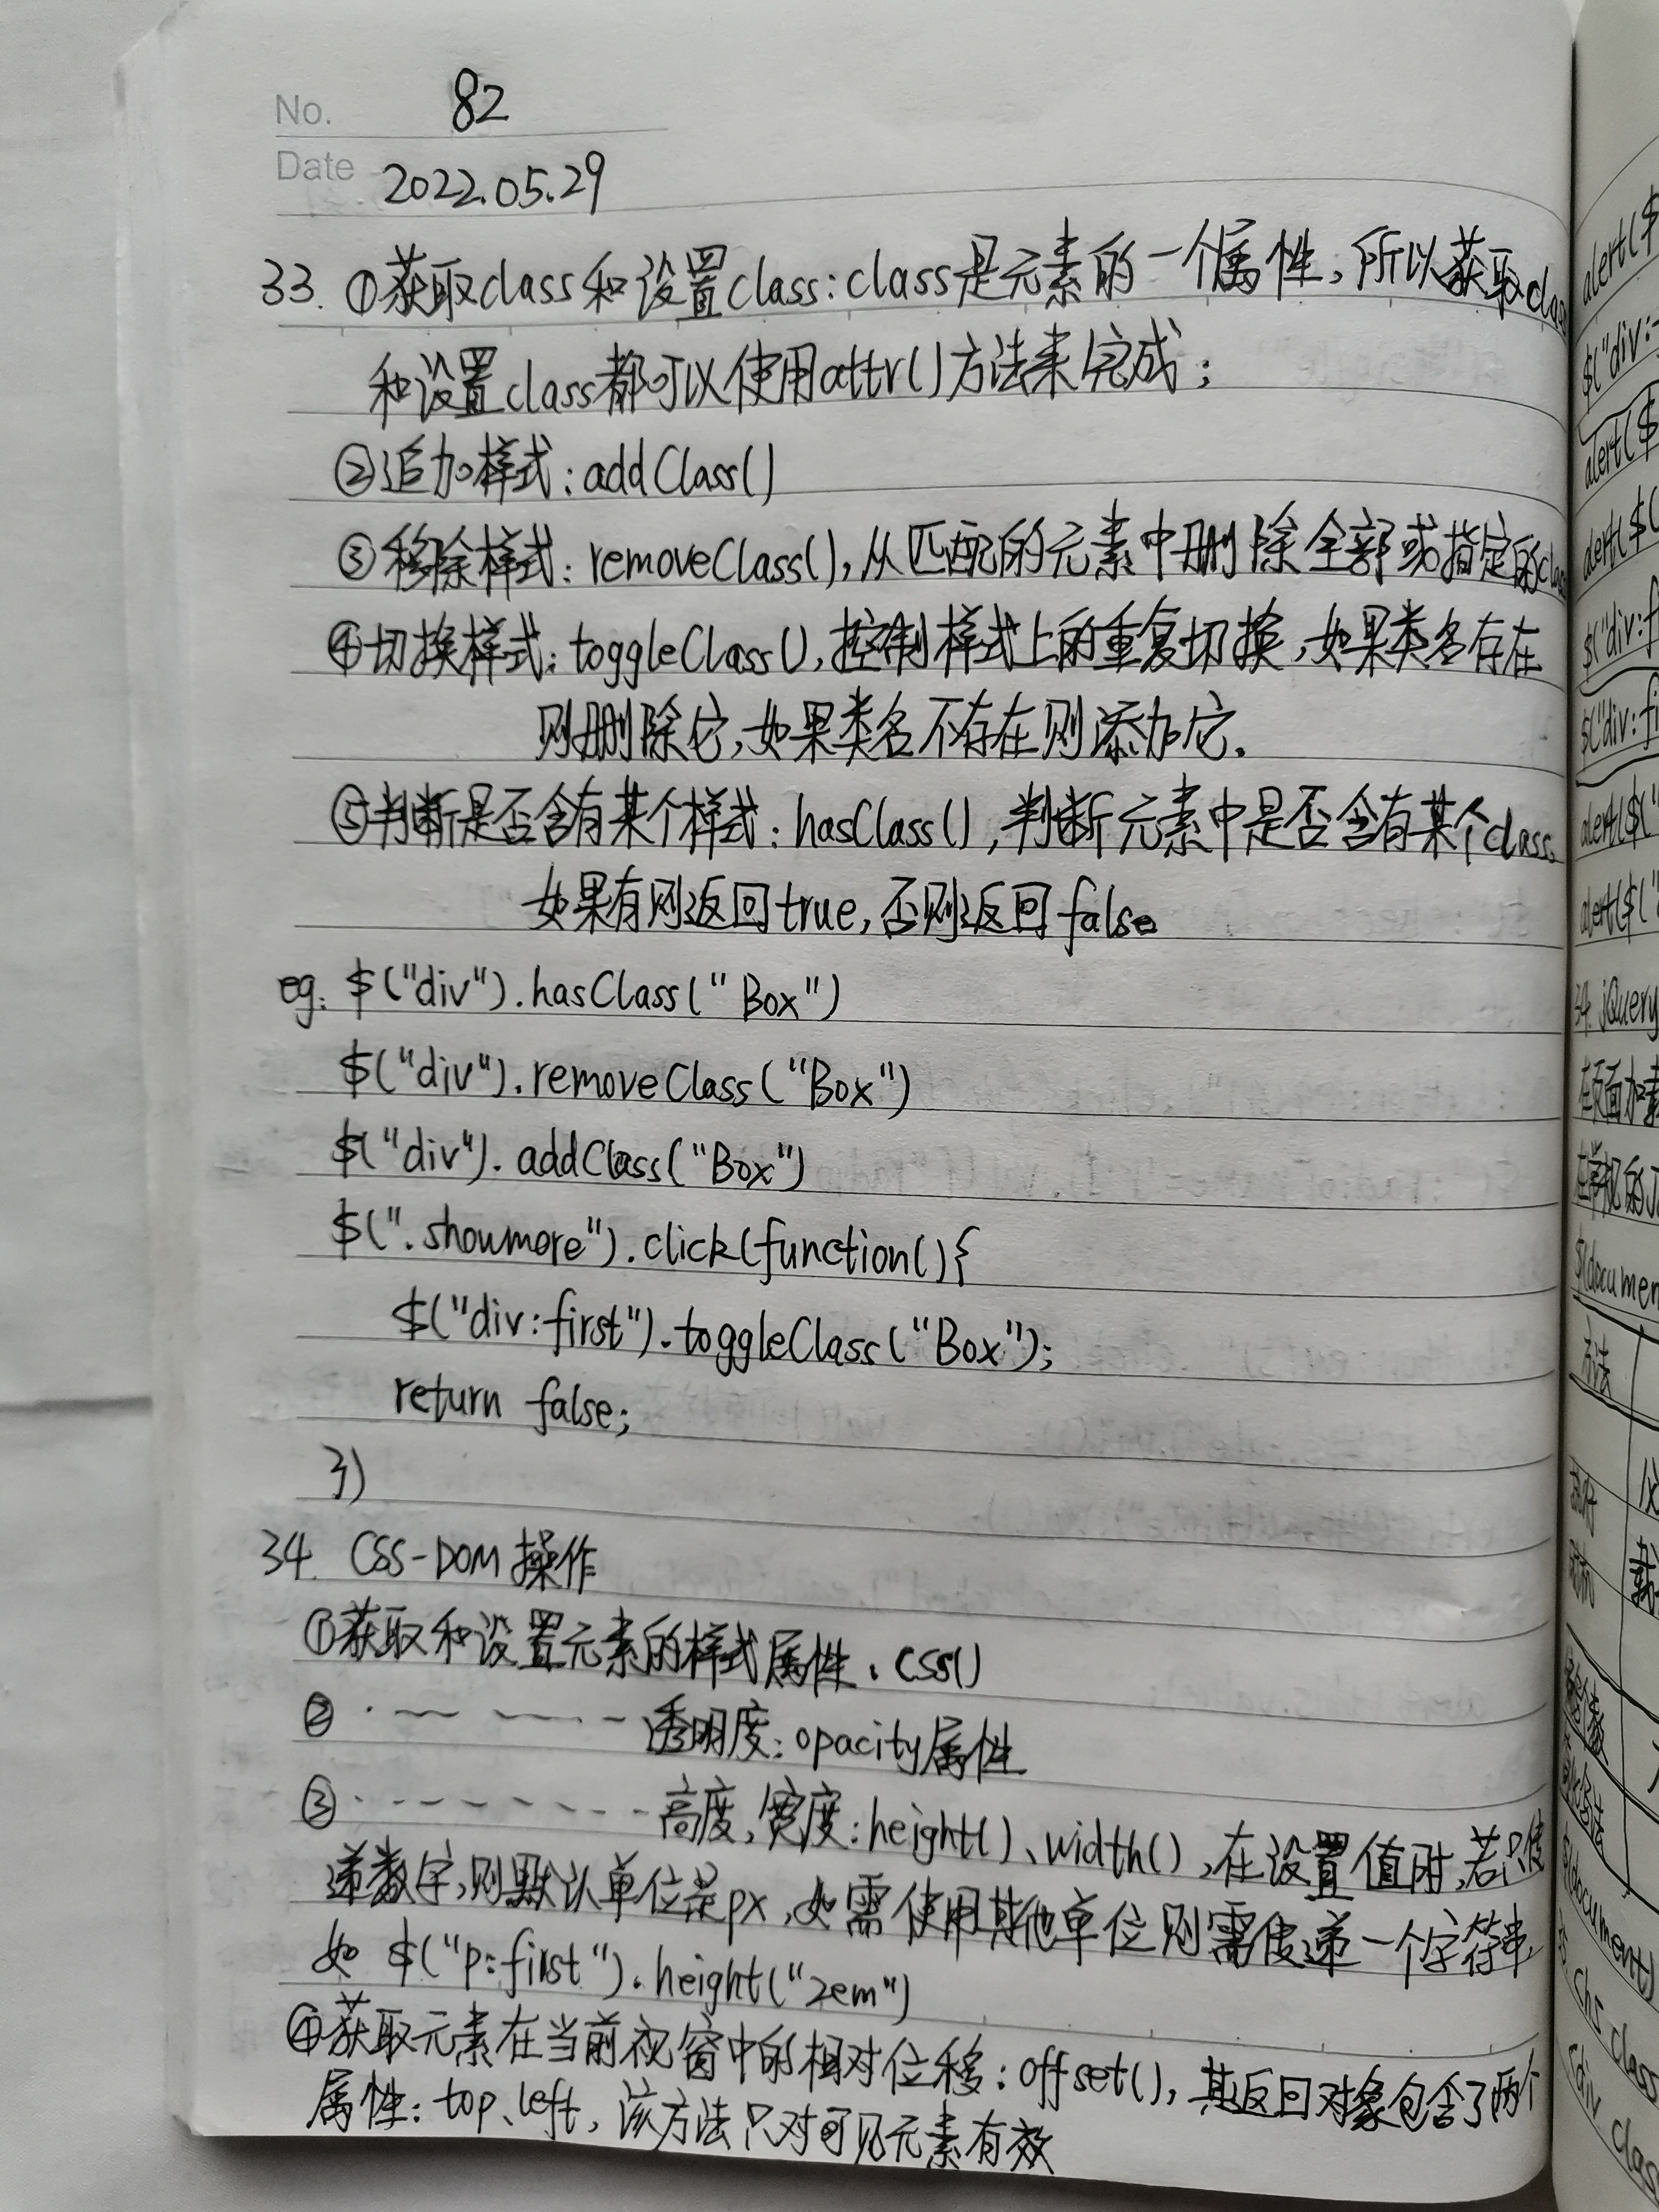 No. 82
Date 2022.05.29
33. ①获取class和设置class:class是元素的一个属性,所以获取class
和设置class都可以使用attr()方法来完成;
②追加样式:addClass()
③移除样式:removeClass(),从匹配的元素中删除全部或指定的class
④切换样式:toggleClass(),控制样式上的重复切换,如果类名存在
则删除它,如果类名不存在则添加它。
⑤判断是否含有某个样式:hasClass(),判断元素中是否含有某个class。
如果有则返回true,否则返回false。
eg: $("div").hasClass("Box")
$("div").removeClass("Box")
$("div").addClass("Box")
$(".showmore").click(function(){
$("div:first").toggleClass("Box");
return false;
})
34. CSS-DOM操作
①获取和设置元素的样式属性:css()
② 透明度:opacity属性
③ 高度,宽度:height()、width(),在设置值时,若只传
递数字,则默认单位是px,如需使用其他单位则需传递一个字符串,
如 $("p:first").height("2em")
④获取元素在当前视窗中的相对位移:offset(),其返回对象包含了两个
属性:top、left,该方法只对可见元素有效
alert($
$("div:
alert($
alert($(
$("div:f
$("div:fi
alert($("
alert($("
34. jQuery
在页面加载
在常规的J
$(document
方法
$(document)
class
<div class